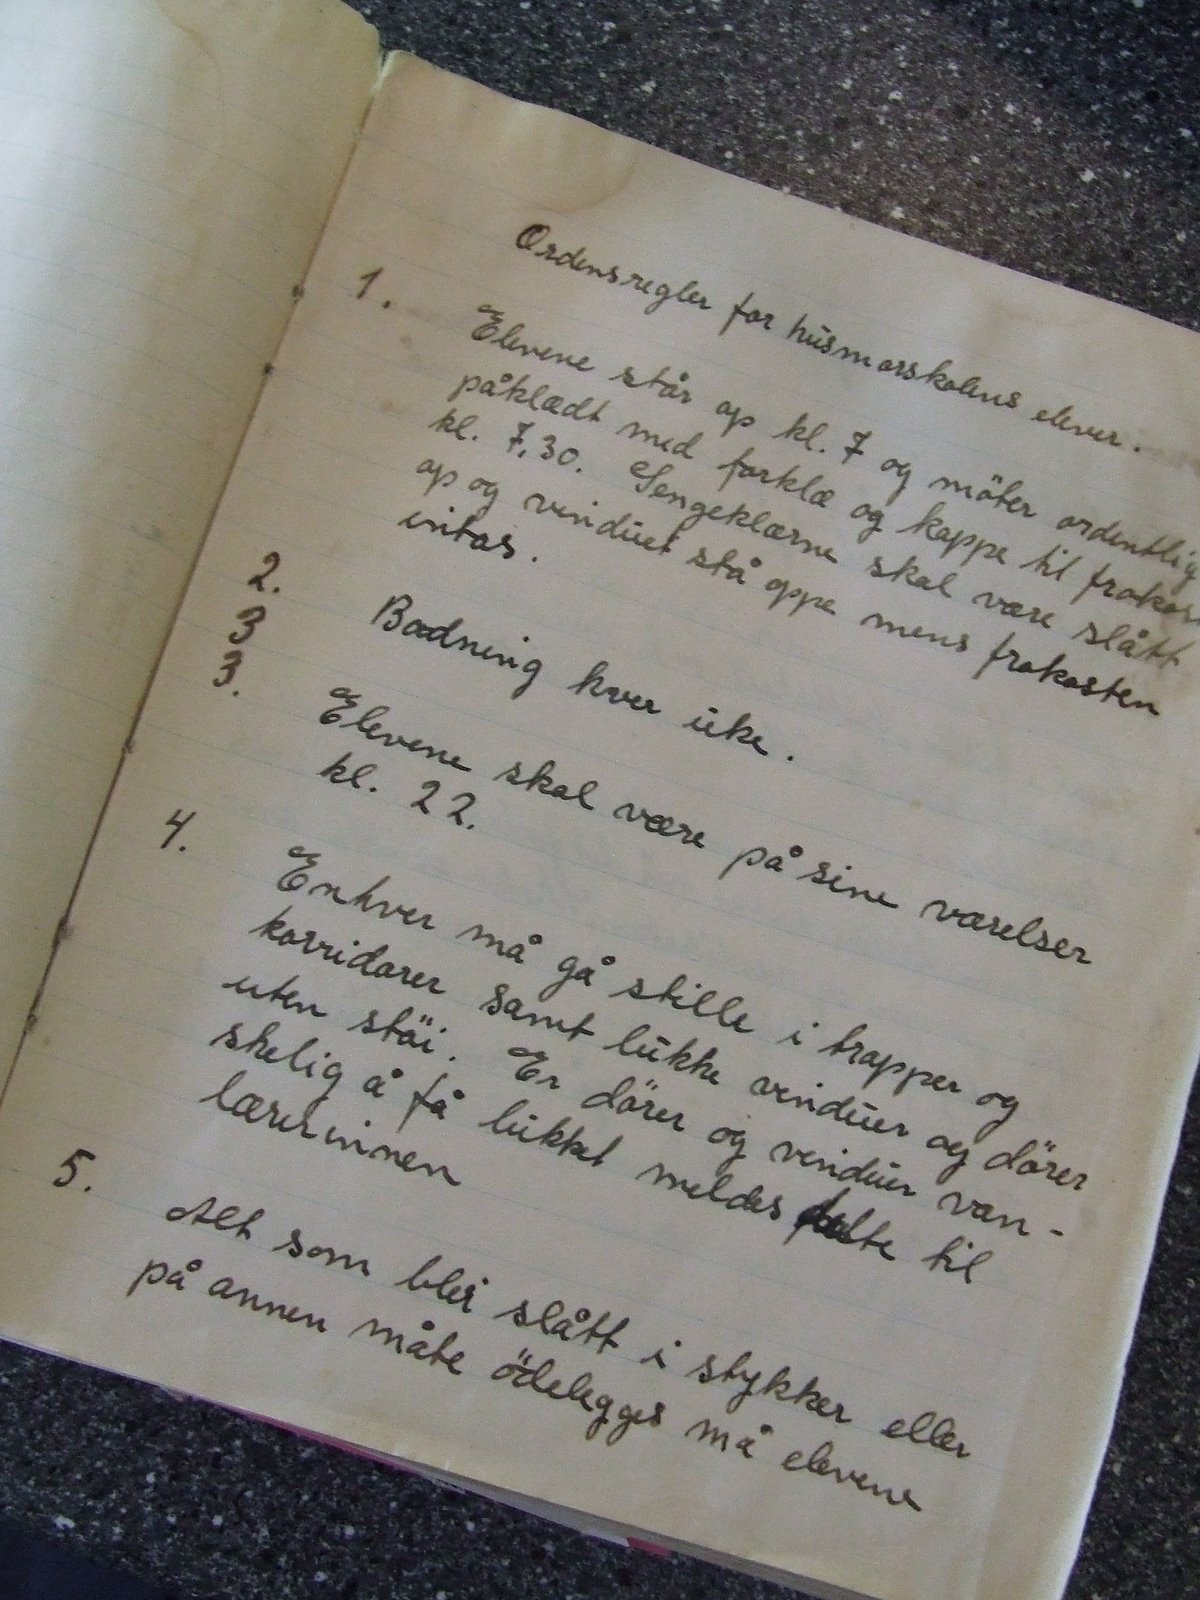 Ordensregler for husmorskolens elever.
1. Elevene står op kl. 7 og möter ordentlig
påklædt med forklæ og kappe til frokost
kl. 7,30. Sengeklærne skal være slått
op og vinduet stå oppe mens frokosten
intas.
2. Badning hver uke.
3
3. Elevene skal være på sine værelser
kl. 22.
4. Enhver må gå stille i trapper og
korridorer samt lukke vinduer og dörer
uten stöi. Er dörer og vinduer van-
skelig å få lukket meldes dette til
lærerinnen
5. Alt som blir slått i stykker eller
på annen måte ödelegges må elevene